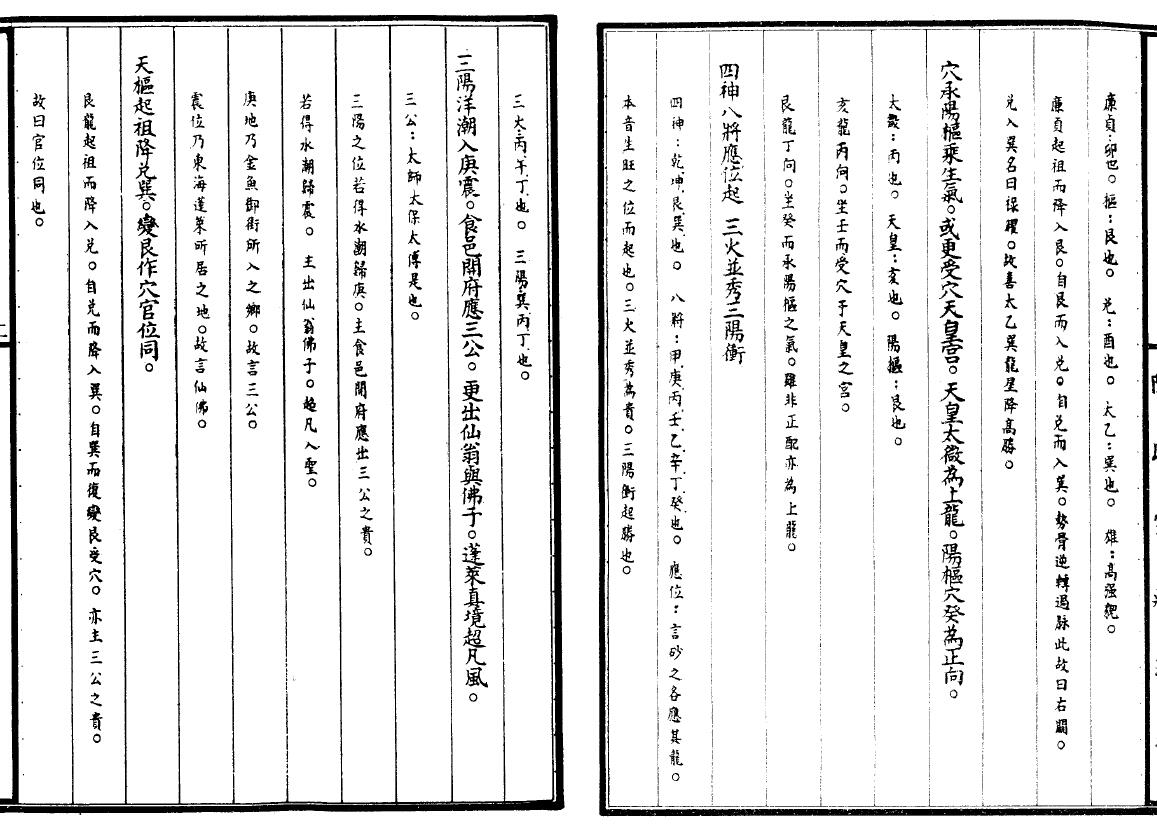 廉貞：卯也。樞：艮也。兌：酉也。太乙：巽也。雄：高强貌。
廉貞起祖而降入艮。自艮而入兌。自兌而入巽。勢骨逆轉過脉此故曰右闢。
兌入巽名曰祿耀。故喜太乙巽龍星降高勝。
穴承陽樞乘生氣。或更受穴天皇宮。天皇太微為上龍。陽樞穴癸為正向。
太微：丙也。天皇：亥也。陽樞：艮也。
亥龍丙向。坐壬而受穴于天皇之宮。
艮龍丁向。坐癸而承陽樞之氣。雖非正配亦為上龍。
四神八將應位起 三火並秀三陽衝
四神：乾坤艮巽也。八將：甲庚丙壬乙辛丁癸也。應位：言砂之各應其龍。
本音生旺之位而起也。三火並秀為貴。三陽衝起勝也。
三火：丙午丁也。三陽：巽丙丁也。
三陽洋潮入庚震。食邑開府應三公。更出仙翁與佛子。蓬萊真境超凡風。
三公：太師太保太傅是也。
三陽之位若得水潮歸庚。主食邑開府應出三公之貴。
若得水潮歸震。主出仙翁佛子。超凡入聖。
庚地乃金魚御街所入之鄉。故言三公。
震位乃東海蓬萊所居之地。故言仙佛。
天樞起祖降兌巽。變艮作穴官位同。
艮龍起祖而降入兌。自兌而降入巽。自巽而復變艮受穴。亦主三公之貴。
故曰官位同也。